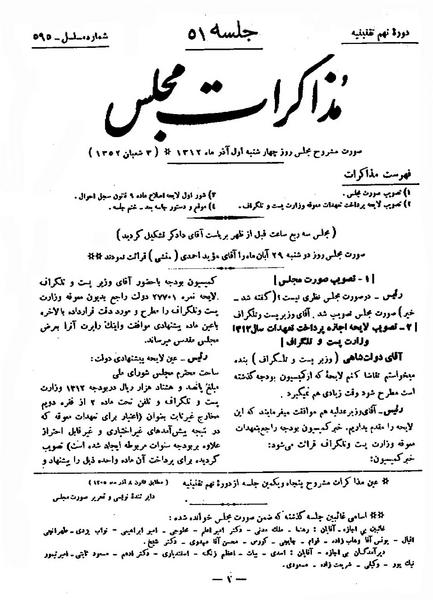 دورهٔ نهم تقنینیه
جلسه ۵۱
شماره مسلسل - ۵۹۵
مذاکرات مجلس
صورت مشروح مجلس روز چهارشنبه اول آذر ماه ۱۳۱۲ * ( ۳ شعبان ۱۳۵۲ )
فهرست مذاکرات
۱) تصویب صورت مجلس.
۲) تصویب لایحه پرداخت تعهدات معوقه وزارت پست و تلگراف.
۳) شور اول لایحه اصلاح ماده ۹ قانون سجل احوال.
۴) موقع و دستور جلسه بعد - ختم جلسه.
( مجلس سه ربع ساعت قبل از ظهر بریاست آقای دادگر تشکیل گردید )
صورت مجلس روز دوشنبه ۲۹ آبان ماه را آقای مؤید احمدی ( منشی ) قرائت نمودند **
[ ۱- تصویب صورت مجلس ]
رئیس - در صورت مجلس نظری نیست؟ ( گفته شد -
خیر ) صورت مجلس تصویب شد. آقای وزیر پست و تلگراف
[ ۲- تصویب لایحه اجازه پرداخت تعهدات سال ۱۳۱۲
وزارت پست و تلگراف ]
آقای دولتشاهی ( وزیر پست و تلگراف ) بنده
میخواستم تقاضا کنم لایحه که از کمیسیون بودجه گذشته
است مطرح شود وقت زیادی هم نمیگیرد.
رئیس - آقای وزیر عدلیه هم موافقت میفرمایند که این
لایحه را مقدم بداریم. خبر کمیسیون بودجه راجع بتعهدات
معوقه وزارت پست و تلگراف قرائت می‌شود:
خبر کمیسیون:
کمیسیون بودجه با حضور آقای وزیر پست و تلگراف
لایحه نمره ۲۷۷۰۱ دولت راجع بدیون معوقه وزارت
پست و تلگراف را مطرح و مورد دقت قرارداد بالاخره
با عین ماده پیشنهادی موافقت واینک راپرت آنرا بعرض
مجلس مقدس میرساند.
رئیس - عین لایحه پیشنهادی دولت:
ساحت محترم مجلس شورای ملی
مبلغ پانصد و هشتاد هزار ریال در بودجه ۱۳۱۲ وزارت
پست و تلگراف و تلفن تحت ماده ۲ از فقره دویم
مخارج غیر ثابت بعنوان ( اعتبار برای تعهدات معوقه که
در نتیجه پیش‌آمدهای غیر اختیاری و غیر قابل احتراز
علاوه بر بودجه سنوات مربوطه ایجاد شده است ) تصویب
گردیده برای پرداخت آن ماده واحده ذیل را پیشنهاد و
* عین مذاکرات مشروح پنجاه و یکمین جلسه از دوره نهم تقنینیه
( مطابق قانون ۸ آذر ماه ۱۳۰۵ )
دایر تندنویسی و تحریر صورت مجلس
** اسامی غائبین جلسه گذشته که ضمن صورت مجلس خوانده شده:
غائبین بی اجازه - آقایان: رهنما - ملک مدنی - دکتر امیر اعلم - مخلوجی - امیر ابراهیمی - نواب یزدی - طهرانچی
اقبال - یونس آقا وهاب زاده - قوام - چایچی - کورس - محسن آقا مهدوی - دکتر شیخ.
دیرآمدگان بی اجازه - آقایان: اسدی - بیات - اعظم زنگنه - اسفندیاری - دکتر ادهم - مسعود ثابتی - امیر تیمور
نیک پور - وکیلی - شریعت زاده - مسعودی.
- ۱ -